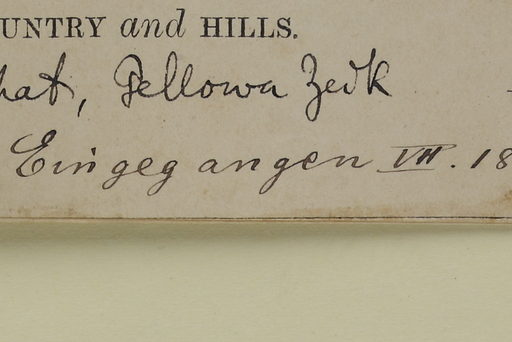 UNTRY and HILLS.
hat, Pellowa Zeik
Eingegangen VII. 18